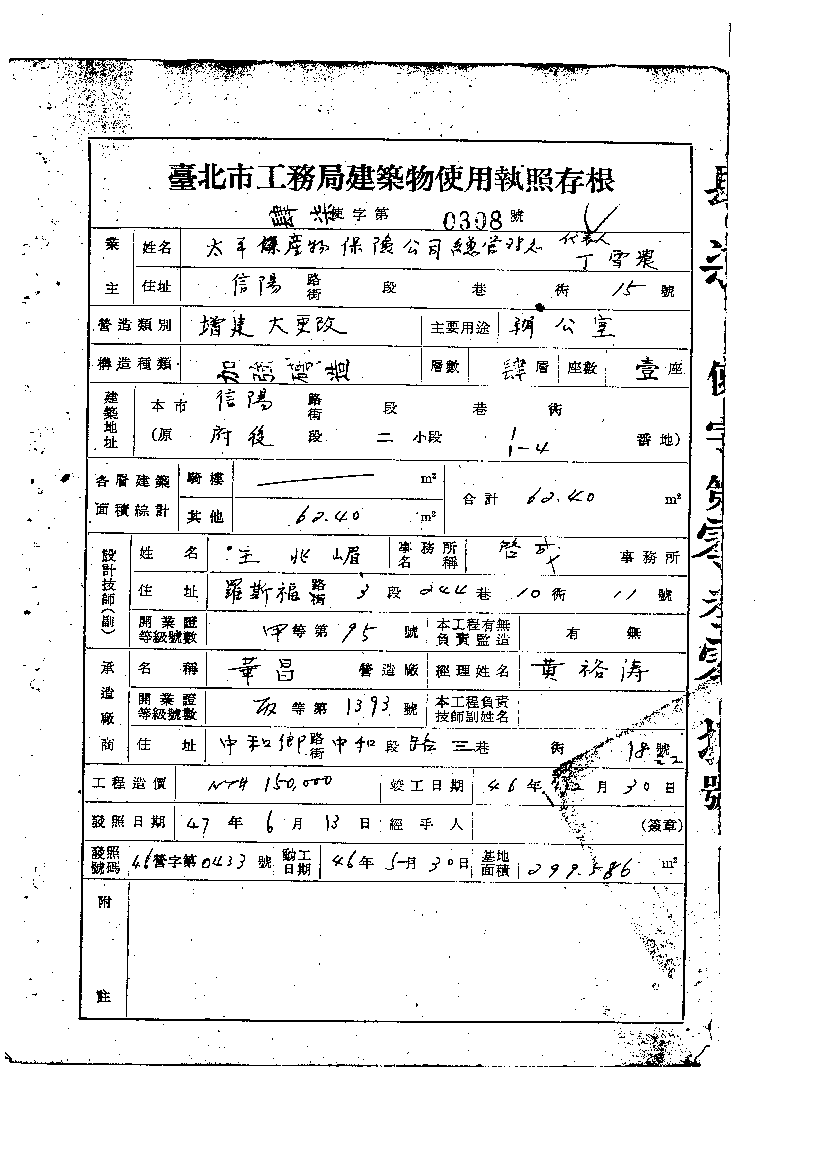 臺北市工務局建築物使用執照存根
肆柒使字第 0308 號
業主 姓名 太平洋產物保險公司總管理處 代表人 丁雪農
住址 信陽 路街 段 巷 衖 15 號
營造類別 增建大更改 主要用途 辦公室
構造種類 加強磚造 層數 肆 層 座數 壹 座
建築地址 本市 信陽 路街 段 巷 衖
(原 府後 段 二 小段 1-4 番地)
各層建築面積綜計 騎樓 m² 合計 62.40 m²
其他 62.40 m²
設計技師(副) 姓名 王兆嵋 事務所名稱 啓成 事務所
住址 羅斯福 路街 3 段 244 巷 10 衖 11 號
開業證等級號數 甲等第 95 號 本工程有無負責監造 有 無
承造廠商 名稱 華昌 營造廠 經理姓名 黃裕濤
開業證等級號數 等第 1393 號 本工程負責技師副姓名
住址 中和鄉 路街 中和 段 路三巷 衖 18 號
工程造價 NT$ 150,000 竣工日期 46 年 12 月 30 日
發照日期 47 年 6 月 13 日 經手人 (簽章)
發照號碼 46營字第0433 號 動工日期 46 年 5 月 30 日 基地面積 299.586 m²
附註
使字第零叁零捌號